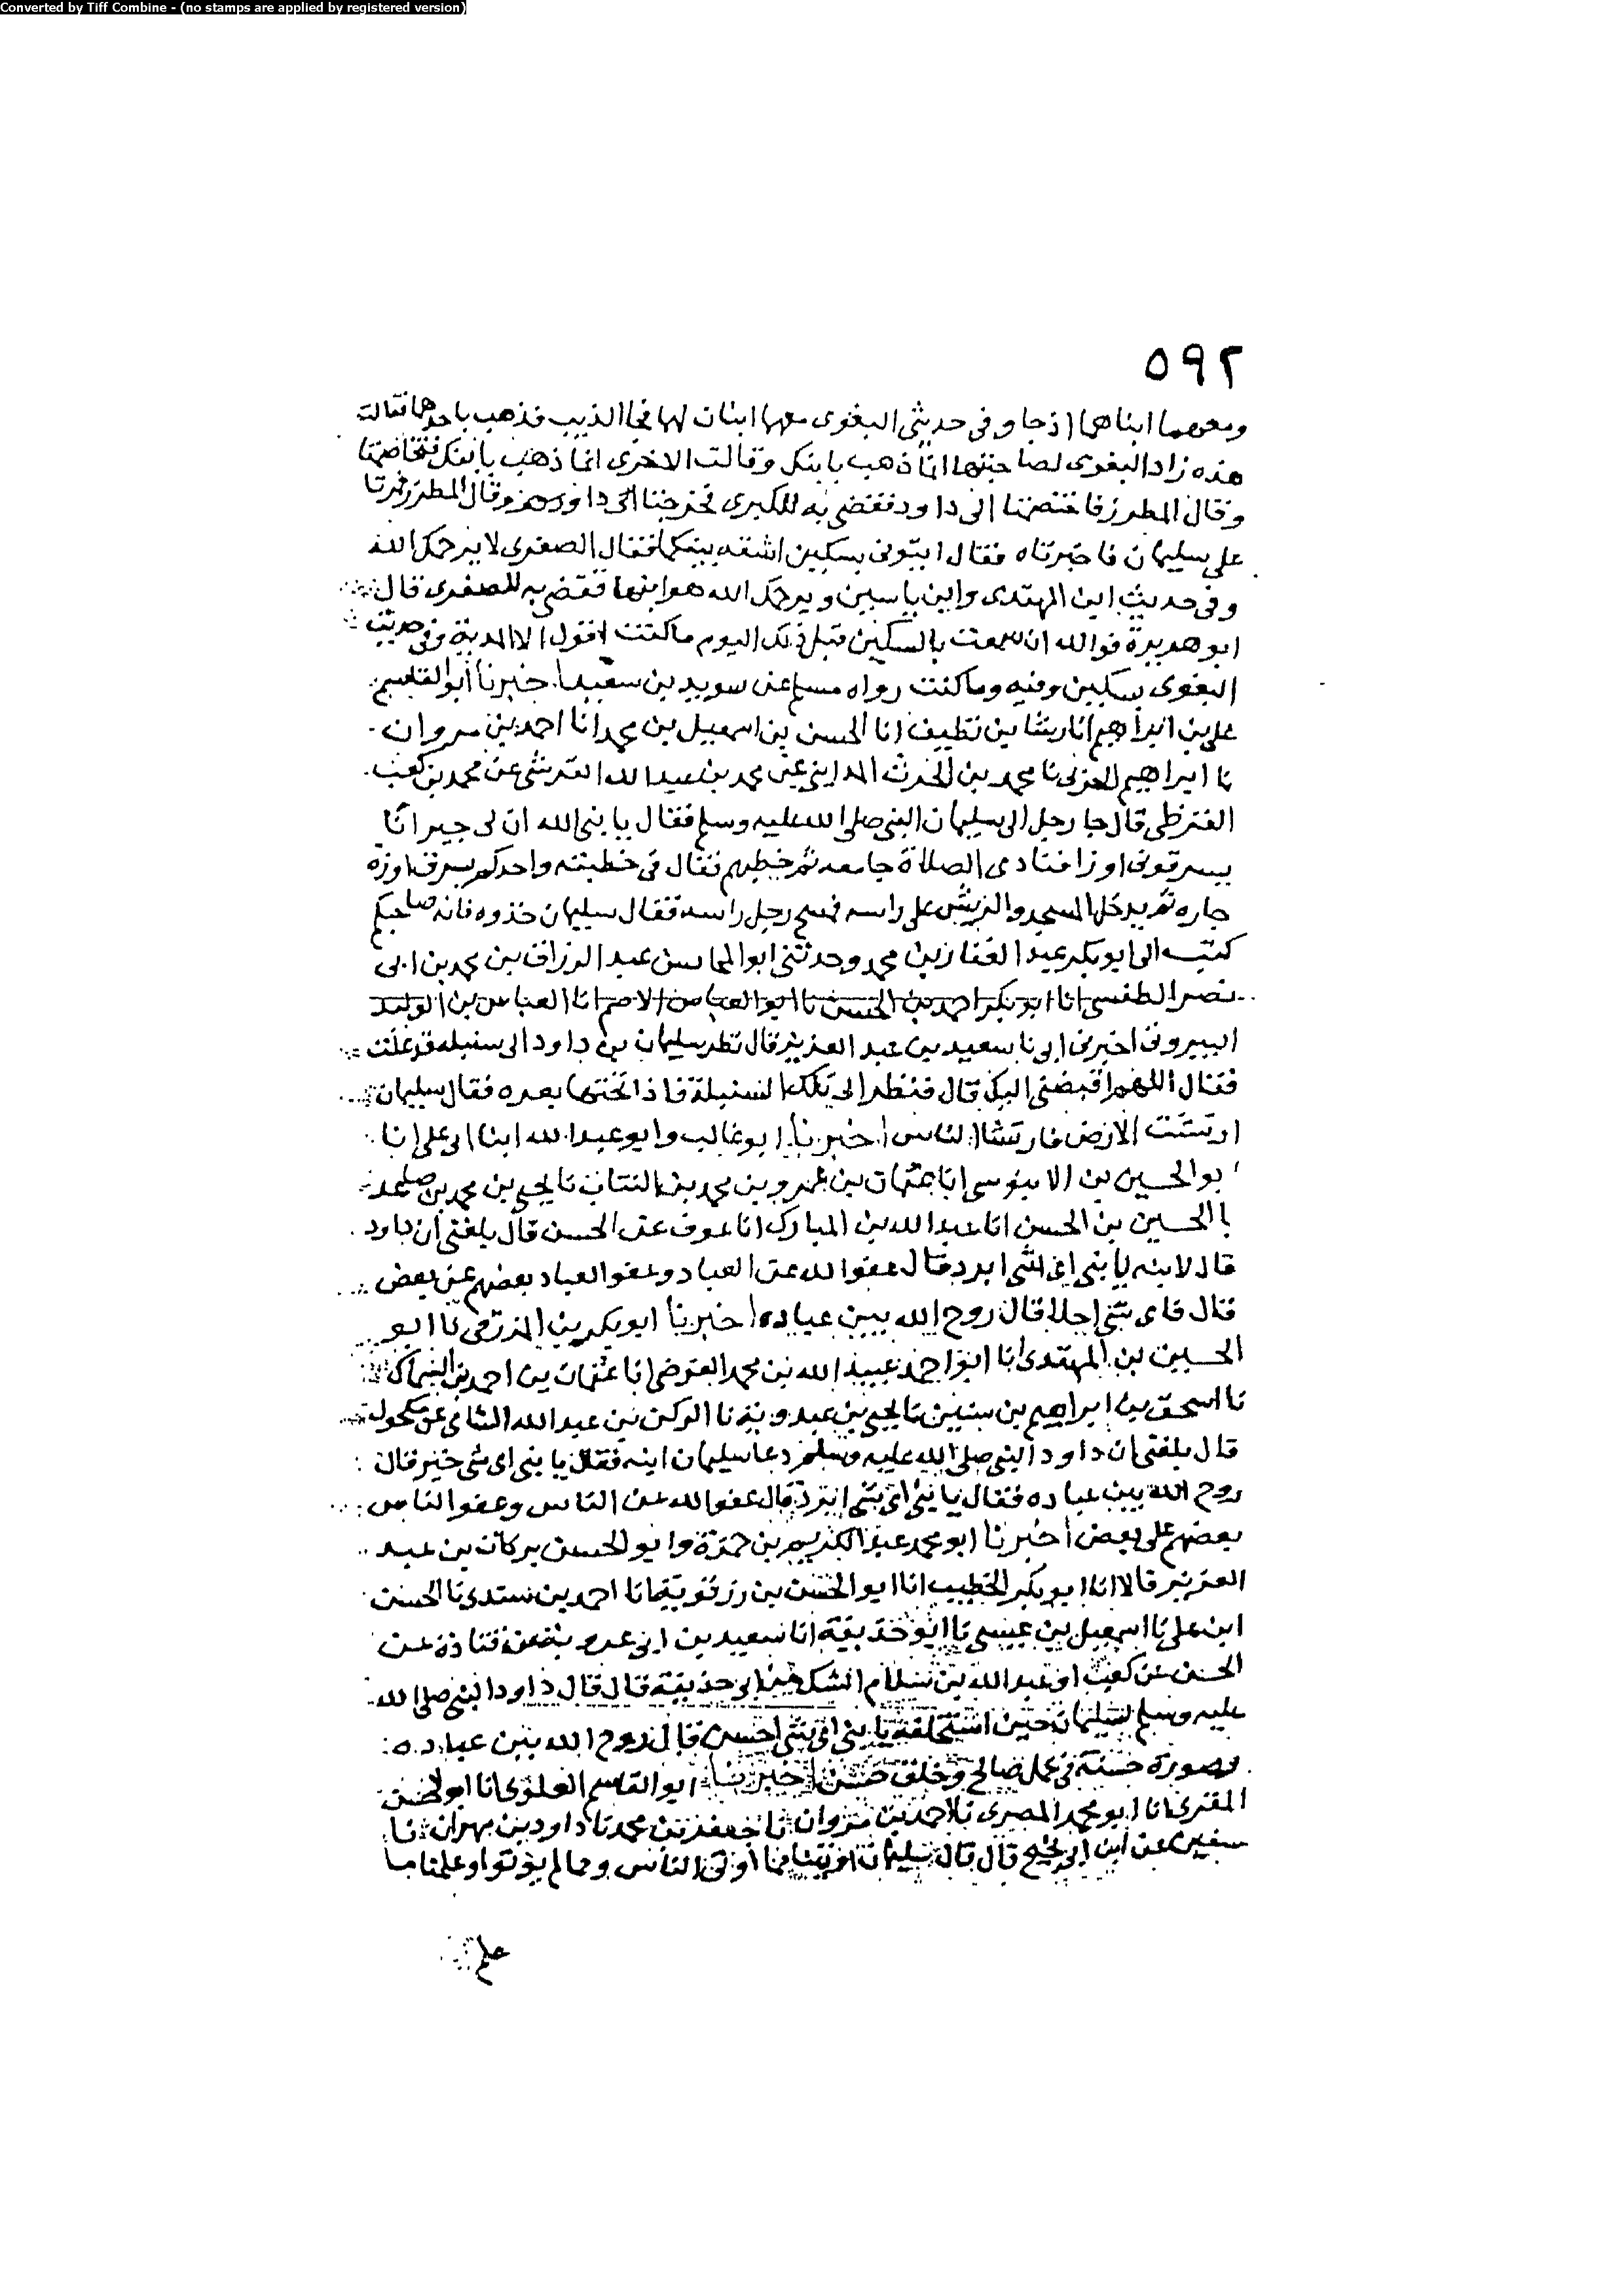 Converted by Tiff Combine - (no stamps are applied by registered version)
٥٩٢
ومعهما ابناهما اذ جا وفى حديث البغوى معها ابنان لها فجا الذيب فذهب باحدهما فقالت
هذه زاد البغوى لصاحبتها انما ذهب بابنك وقالت الاخرى انما ذهب بابنك فتخاصمتا
وقال المطرز فاختصمتا الى داود فقضى به للكبرى فخرجتا الى داود وقال المطرز فمرتا
على سليمان فاخبرتاه فقال ايتونى بسكين اشقه بينكما فقال الصغرى لا يرحمك الله
وفى حديث ابن المهتدى وابن ياسين ويرحمك الله هو ابنها فقضى به للصغرى قال
ابو هريرة فوالله ان سمعت بالسكين قبل ذلك اليوم ما كنت اقول الا المدية وفى حديث
البغوى بسكين وفيه وما كنت رواه مسلم عن سويد بن سعيد اخبرنا ابو القاسم
على بن ابراهيم انا رشا بن نظيف انا الحسن بن اسمعيل بن محمد انا احمد بن مروان
نا ابراهيم الحربى نا محمد بن الحرث المداينى عن محمد بن عبد الله القرشى عن محمد بن كعب
القرظى قال جا رجل الى سليمان النبى صلى الله عليه وسلم فقال يا نبى الله ان لى جيرانا
يسرقون اوزا فنادى الصلاة جامعه ثم خطبهم فقال فى خطبته واحدكم يسرق اوزه
جاره ثم يدخل المسجد والريش على راسه فمسح رجل راسه فقال سليمان خذوه فانه صاحبكم
كتب الى ابو بكر عبد الغفار بن محمد وحدثنى ابو المحاسن عبد الرزاق بن محمد بن ابى
نصر الطبسى انا ابو بكر احمد بن الحسن نا ابو العباس الاصم انا العباس بن الوليد
البيروتى اخبرنى ابى نا سعيد بن عبد العزيز قال نظر سليمان بن داود الى سنبله قد علت
فقال اللهم اقبضنى اليك قال فنظر الى تلك السنبلة فاذا تحتها بعره فقال سليمان
ارتشت الارض فارتشا الناس اخبرنا ابو غالب وابو عبد الله ابنا ابى على انا
ابو الحسين بن الابنوسى انا عثمان بن عمرو بن محمد بن المنتاب نا يحيى بن محمد بن صاعد
نا الحسين بن الحسن انا عبد الله بن المبارك انا عوف عن الحسن قال بلغنى ان داود
قال لابنه يا بنى اى شى ابرد قال عفو الله عن العباد وعفو العباد بعضهم عن بعض
قال فاى شى احلا قال روح الله بين عباده اخبرنا ابو بكر بن المزرفى نا ابو
الحسين بن المهتدى انا ابو احمد عبيد الله بن محمد الفرضى انا عثمان بن احمد بن السماك
نا اسحق بن ابراهيم بن سنين نا يحيى بن عبدويه نا الركن بن عبد الله الشامى عن مكحول
قال بلغنى ان داود النبى صلى الله عليه وسلم دعا سليمان ابنه فقال يا بنى اى شى خير قال
روح الله بين عباده فقال يا بنى اى شى ابرد قال عفو الله عن الناس وعفو الناس
بعضهم على بعض اخبرنا ابو محمد عبد الكريم بن حمزة وابو الحسن بركات بن عبد
العزيز قالا انا ابو بكر الخطيب انا ابو الحسن بن رزقويه انا احمد بن سندى نا الحسن
ابن على نا اسمعيل بن عيسى نا ابو حذيفة انا سعيد بن ابى عروبة عن قتادة عن
الحسن عن كعب او عبد الله بن سلام الشك من ابى حذيفة قال قال داود النبى صلى الله
عليه وسلم لسليمان حين استخلفه يا بنى اى شى احسن قال روح الله بين عباده
وصورة حسنة فى عمل صالح وخلق حسن اخبرنا ابو القاسم العلوى انا ابو الحسن
المقرى انا ابو محمد المصرى نا احمد بن مروان نا جعفر بن محمد نا داود بن مهران نا
سفين عن ابن ابى نجيح قال قال سليمان اوتينا مما اوتى الناس ومما لم يؤتوا وعلمنا مما
علم